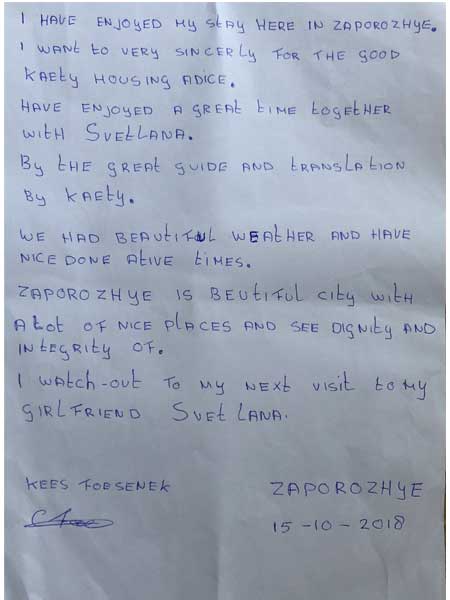 I HAVE ENJOYED MY STAY HERE IN ZAPOROZHYE.
I WANT TO VERY SINCERLY FOR THE GOOD
KAETY HOUSING ADICE.
HAVE ENJOYED A GREAT TIME TOGETHER
WITH SVETLANA.
BY THE GREAT GUIDE AND TRANSLATION
BY KAETY.
WE HAD BEAUTIFUL WEATHER AND HAVE
NICE DONE ATIVE TIMES.
ZAPOROZHYE IS BEUTIFUL CITY WITH
A LOT OF NICE PLACES AND SEE DIGNITY AND
INTEGRITY OF.
I WATCH-OUT TO MY NEXT VISIT TO MY
GIRLFRIEND SVETLANA.
KEES FOESENEK ZAPOROZHYE
15-10-2018